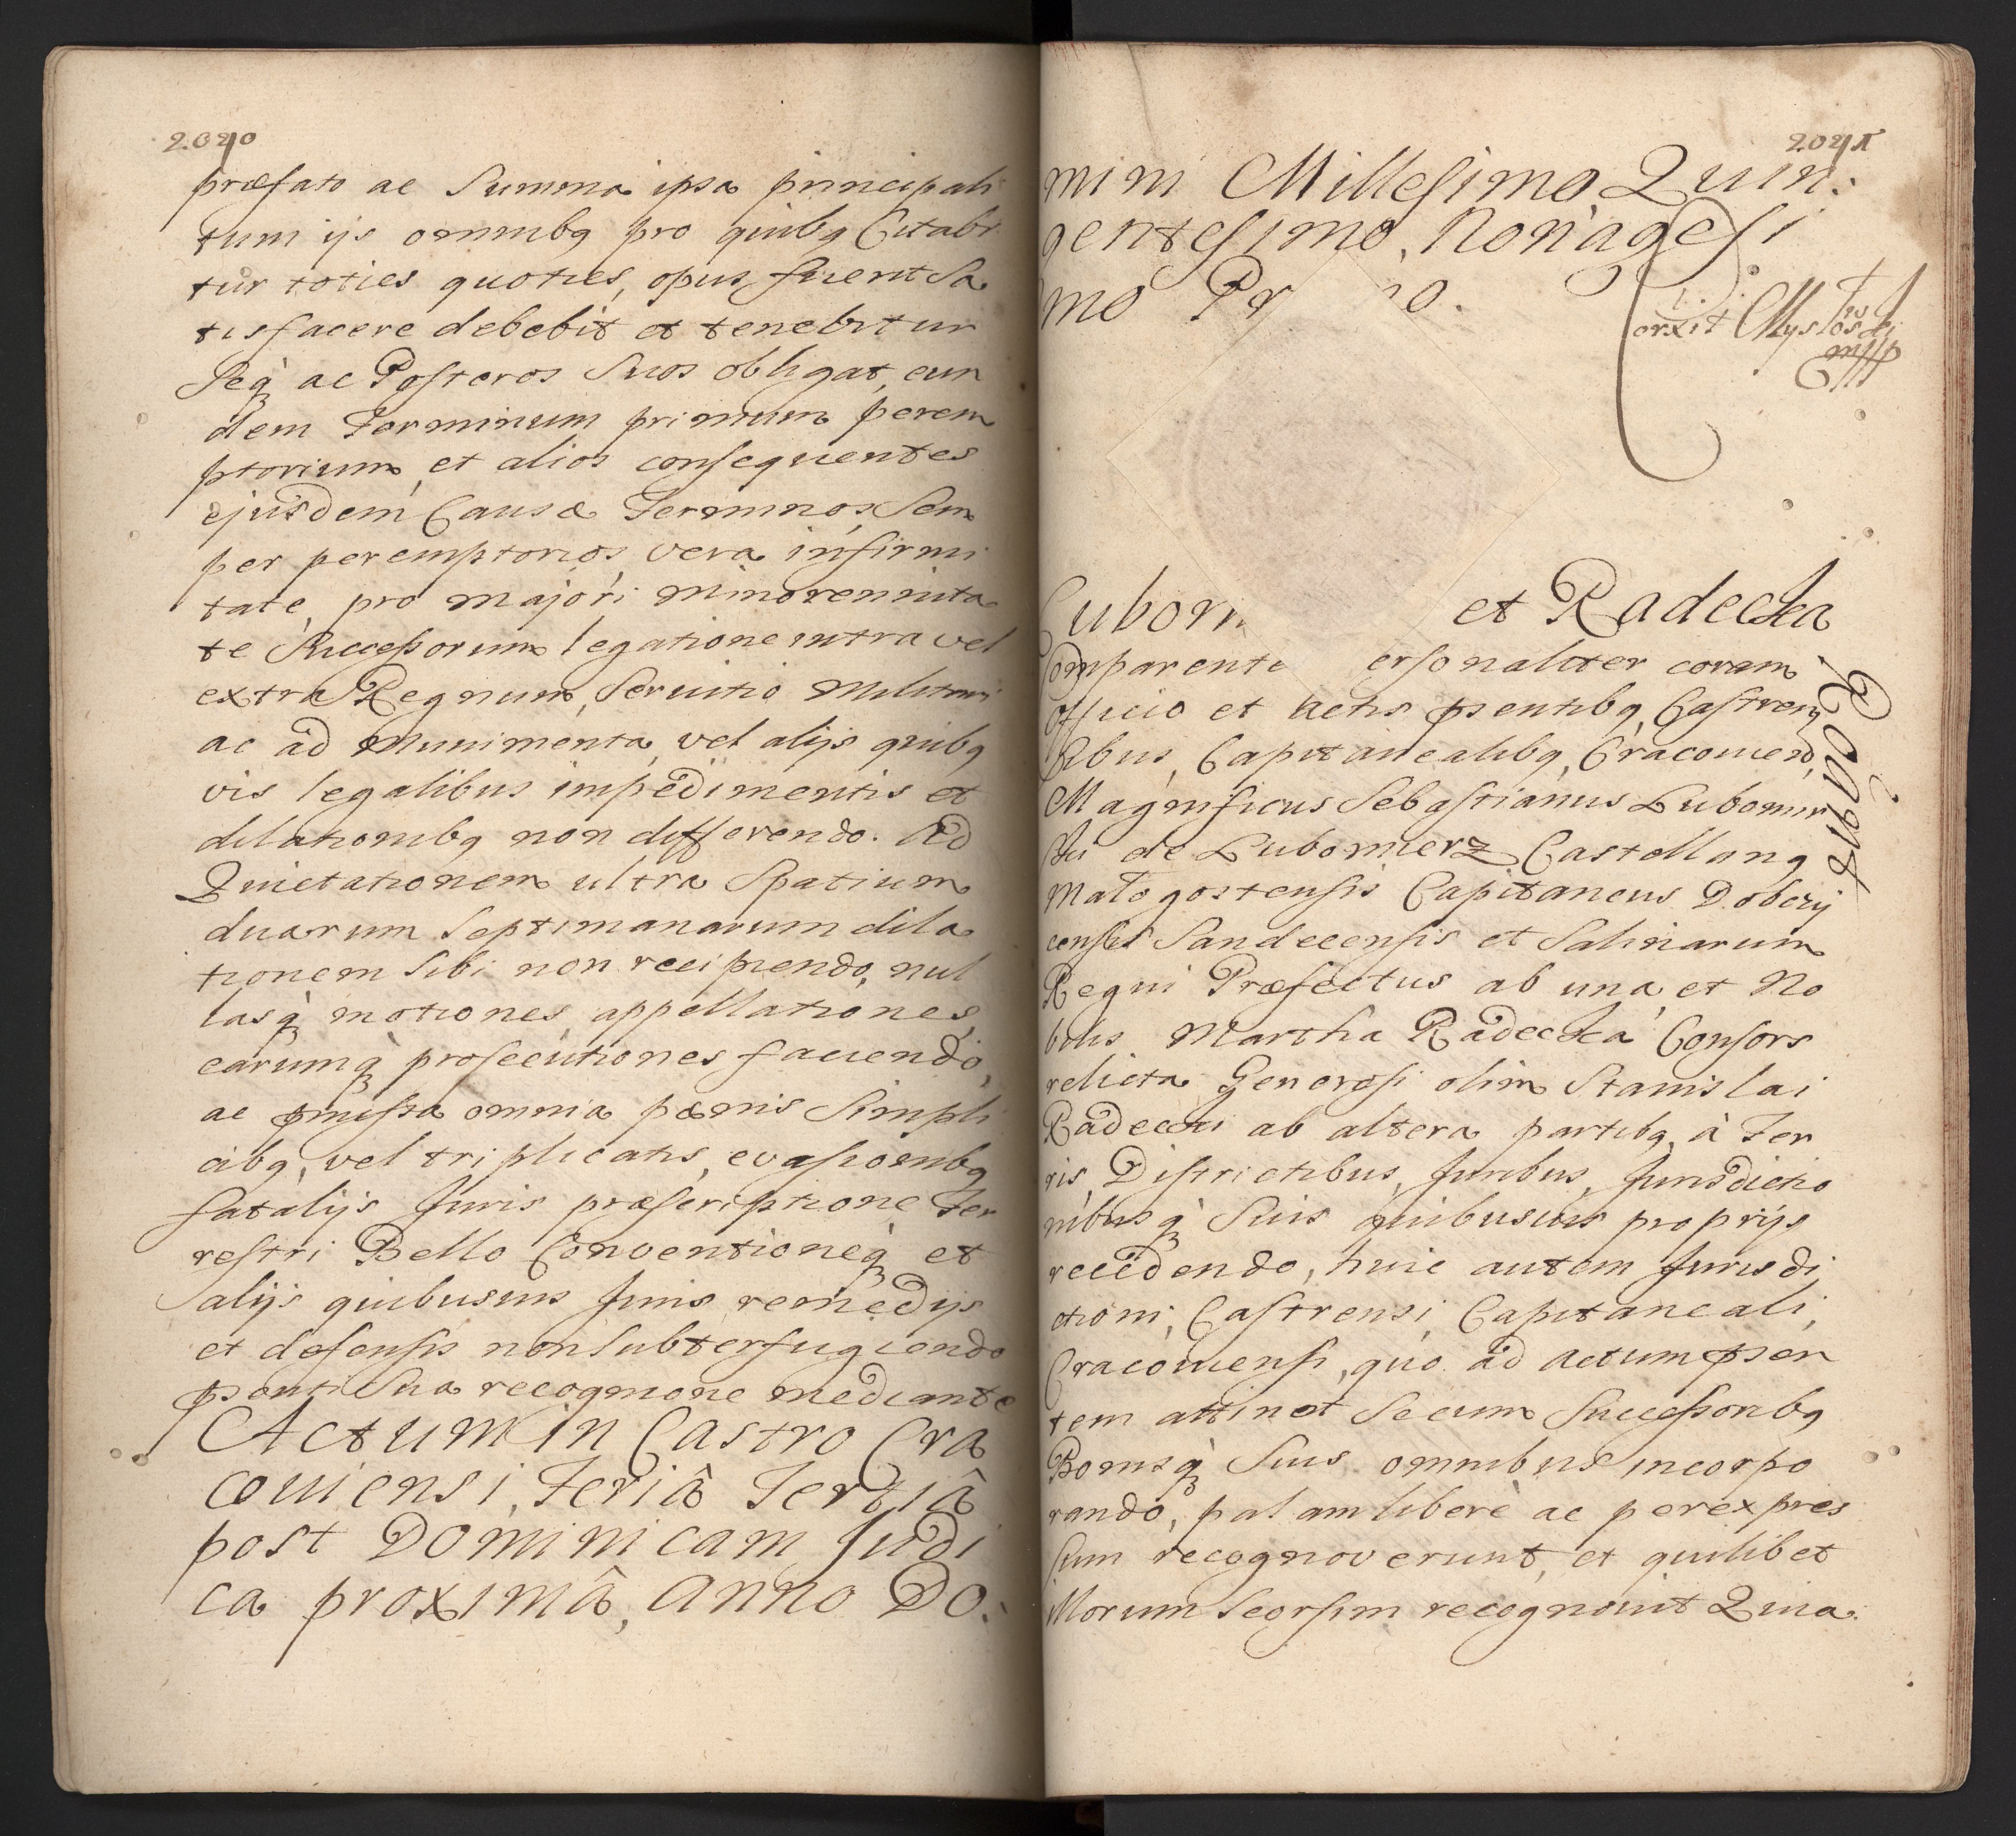 2020
præfato ac Summa ipsa principali
tum ijs omnibq pro quibq Citabi
tur toties quoties, opus fuerit Sa
tisfacere debebit et tenebitur
Seq́ ac Posteros Suos obligat, eun
dem Terminum primum perem
ptorium, et alios consequentes
ejusdem Causæ Terminos, Sem
per peremptorios, vera infirmi
tate, pro majori minorennita
te Successorum legatione intra vel
extra Regnum, Servitio Militari
ac ad Munimenta, vel alijs quibq
vis legalibus impedimentis et
dilationibq non differendo. Ad
Quietationem ultra Spatium
duarum Septimanarum dila
tionem Sibi non recipiendo, nul
lasq́ motiones, appellationes,
earumq́ prosecutiones faciendo,
ac pmissa omnia pœnis Simpli
cibq, vel triplicatis, evasioenibq
fatalijs Juris præscriptione Ter
restri Bello Conventioneq́ et
alijs quibusuis Juris remedijs
et defensis non Subterfugiendo
psenti Sua recognione mediante
Actum in Castro Cra
couiensi, Feriâ Tertiâ
post Dominicam Judi
ca proximâ, Anno Do.
2021
mini Millesimo Quin:
gentesimo, Nonagesi
mo Pr o.
Lubom et Radecka
Comparente ersonaliter coram
Officio et Actis psentibq, Castren
sibus, Capitanealibq, Cracouien,
Magnificus Sebastianus Lubomir
ski de Lubomierz Castellanq
Małogostensis Capitaneus Dobczy
censis Sandecensis et Salinarum
Regni Præfectus ab una, et No
bilis Martha Radecka Consors
relicta Generosi olim Stanislai
Radecki ab altera partibq, à Ter
ris, Districtibus, Juribus, Jurisdictio
nibusq́ Suis quibusuis proprijs
recedendo, huic autem Jurisdi
ctioni, Castrensi, Capitaneali,
Cracouiensi, quo ad actum psen
tem attinet Se cum Successoribq
Bonisq́ Suis omnibus incorpo
rando, palam liberè ac per expres
sum recognoverunt, et quilibet
illorum Seorsim recognouit Quia.